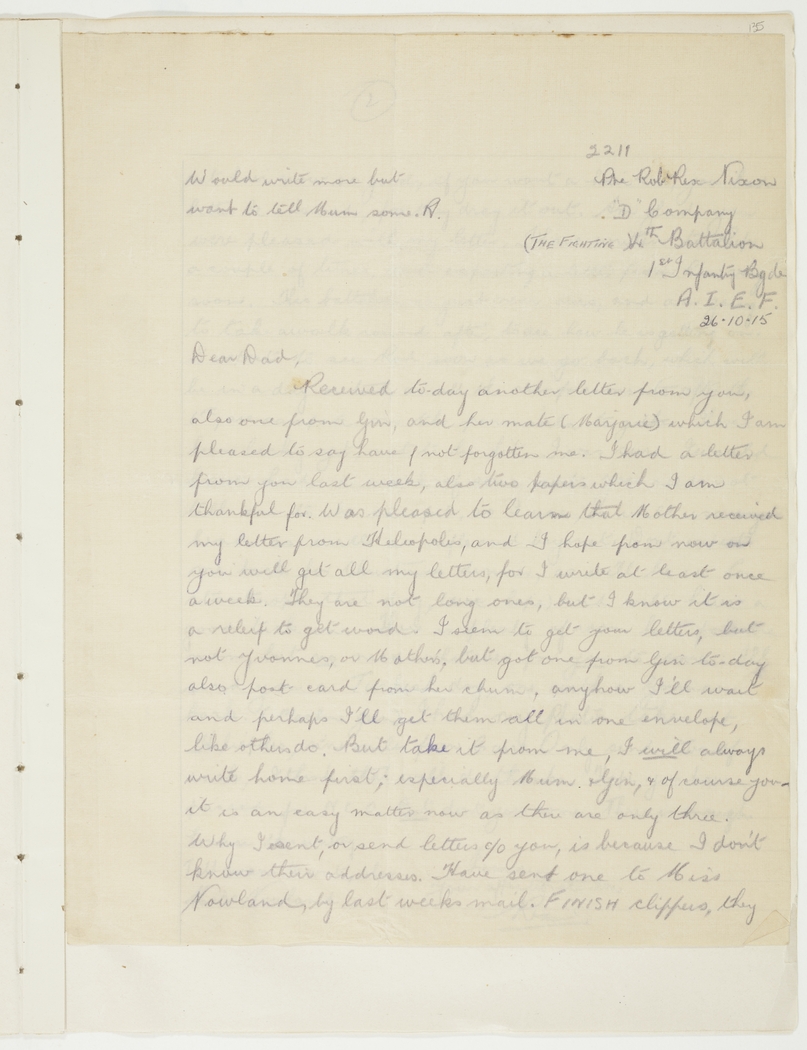 135
2
2211
Would write more but
want to tell Mum some. R.
Pte Rob Rex Nixon
"D" Company
(THE FIGHTING) 4th Battalion
1st Infantry Bgde
A. I. E. F.
26-10-15
Dear Dad,
Received to-day another letter from you,
also one from Gin, and her mate (Marjorie) which I am
pleased to say have not forgotten me. I had a letter
from you last week, also two papers which I am
thankful for. Was pleased to learn that Mother received
my letter from Heleopolis, and I hope from now on
you will get all my letters, for I write at least once
a week. They are not long ones, but I know it is
a releif to get word. I seem to get your letters, but
not Yvonnes, or Mother's, but got one from Gin to-day
also post card from her chum, anyhow I'll wait
and perhaps I'll get them all in one envelope,
like others do. But take it from me, I will always
write home first, especially Mum. & Gin, & of course you-
it is an easy matter now as there are only three.
Why I sent, or send letters c/o you, is because I don't
know their addresses. Have sent one to Miss
Nowland, by last weeks mail. FINISH clippers, they